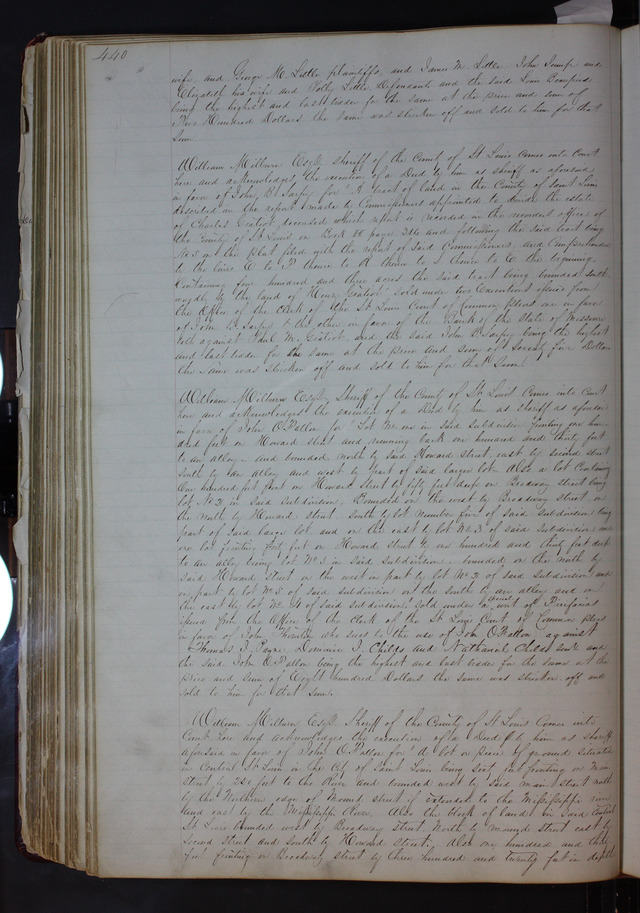 440
wife, and George M. Little plaintiffs, and James M. Little John and
Elizabeth his wife and Polly Little Defendants and the said
being the highest and last bidder for the same at the price and sum of
Five Hundred Dollars the same was stricken off and sold to him for that
Sum.
William Milburn Esqr. Sheriff of the County of St Louis Comes into Court
here and acknowledges the execution of a Deed by him as sheriff as aforesaid
in favor of John B. Sarpy for "A tract of land in the County of Saint Louis
described in the report made by Commissioners appointed to divide the estate
of Charles Gratiot, deceased which report is recorded in the recorders office of
the County of St Louis in Book page and following the said tract being
No 5 on the plat filed with the report of said Commissioners, and
to the lines C to thence to thence to thence to C the begining.
Containing four hundred and three acres the said tract being bounded
by the land of Henry Gratiot" Sold under two executions issued from
the Office of the Clerk of the St Louis Court of Common Pleas one in favor
of John B. Sarpy & the other in favor of the Bank of the State of Missouri
both against Paul M. Gratiot and the said John B. Sarpy being the highest
and last bidder for the same at the price and sum of Seventy five Dollars
the same was stricken off and sold to him for that sum.
William Milburn Esqr. Sheriff of the County of St Louis Comes into Court
here and acknowledges the execution of a Deed by him as sheriff as aforesaid
in favor of John O'Fallon for "Lot No one in said Subdivision fronting one hun-
dred feet on Howard street and running back one hundred and thirty feet
to an alley, and bounded north by said Howard Street, east by second street
south by an alley and west by part of said large lot. Also a lot Containing
One hundred feet front on Howard Street by fifty feet deep on Broadway street being
lot No 2 in said Subdivision, Bounded on the west by Broadway Street on
the North by Howard Street South by lot number five of said Subdivision being
part of said large lot and on the east by lot No 3 of said Subdivision and
one lot fronting feet on Howard Street by one hundred and thirty feet deep
to an alley being lot No 3 in said Subdivision bounded on the north by
said Howard street on the west in part by lot No 2 of said Subdivision and
in part by lot No 5 of said Subdivision on the south by an alley and on
the east by lot No 4 of said Subdivision. Sold under a special writ of Fierifacias
issued from the Office of the Clerk of the St Louis Court of Common Pleas
in favor of John who sues to the use of John O'Fallon against
Thomas J. Payne Domenic J. Childs and Nathaniel Childs and
the said John O'Fallon being the highest and last bidder for the same at the
price and sum of Eight hundred Dollars the same was stricken off and
sold to him for that sum.
William Milburn Esqr. Sheriff of the County of St Louis Comes into
Court here and acknowledges the execution of a Deed by him as sheriff
aforesaid in favor of John O'Fallon for "A lot or piece of ground situated
in Central St Louis in the City of Saint Louis being feet fronting on Main
street by feet to the River and bounded west by said main street north
by the Northern edge of Mound street if extended to the Mississippi river
and east by the Mississippi River. Also the block of land in said Central
St Louis bounded west by Broadway Street North by mound street east by
Second Street and South by Howard Street, Also one hundred and thirty
feet fronting on Broadway street by three hundred and twenty feet in depth